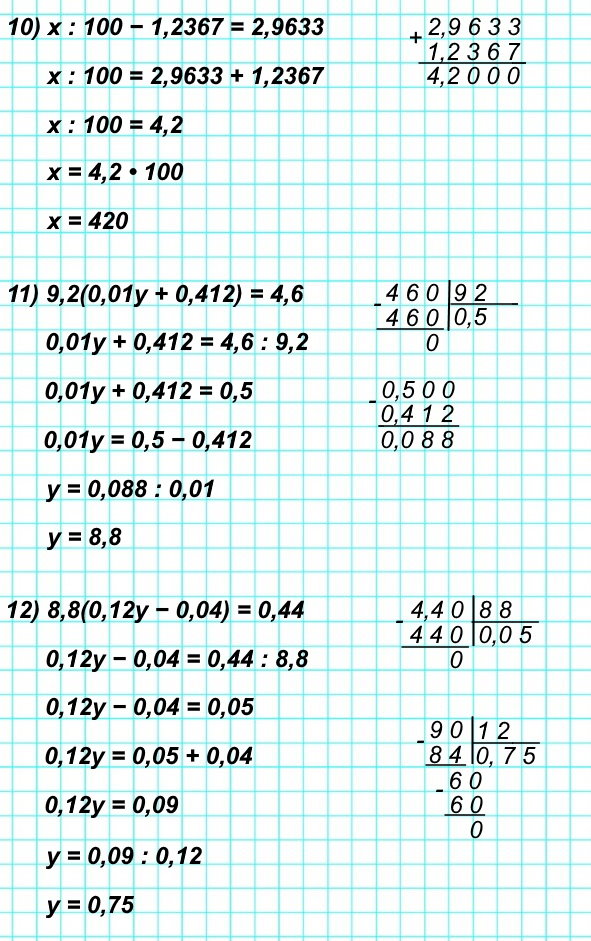 10) x : 100 − 1,2367 = 2,9633
x : 100 = 2,9633 + 1,2367
x : 100 = 4,2
x = 4,2 • 100
x = 420
+ 2,9 6 3 3
1,2 3 6 7
4,2 0 0 0
11) 9,2(0,01y + 0,412) = 4,6
0,01y + 0,412 = 4,6 : 9,2
0,01y + 0,412 = 0,5
0,01y = 0,5 − 0,412
y = 0,088 : 0,01
y = 8,8
- 4 6 0 | 9 2
4 6 0 | 0,5
0
- 0,5 0 0
0,4 1 2
0,0 8 8
12) 8,8(0,12y − 0,04) = 0,44
0,12y − 0,04 = 0,44 : 8,8
0,12y − 0,04 = 0,05
0,12y = 0,05 + 0,04
0,12y = 0,09
y = 0,09 : 0,12
y = 0,75
- 4,4 0 | 8 8
4 4 0 | 0,0 5
0
- 9 0 | 1 2
8 4 | 0, 7 5
- 6 0
6 0
0